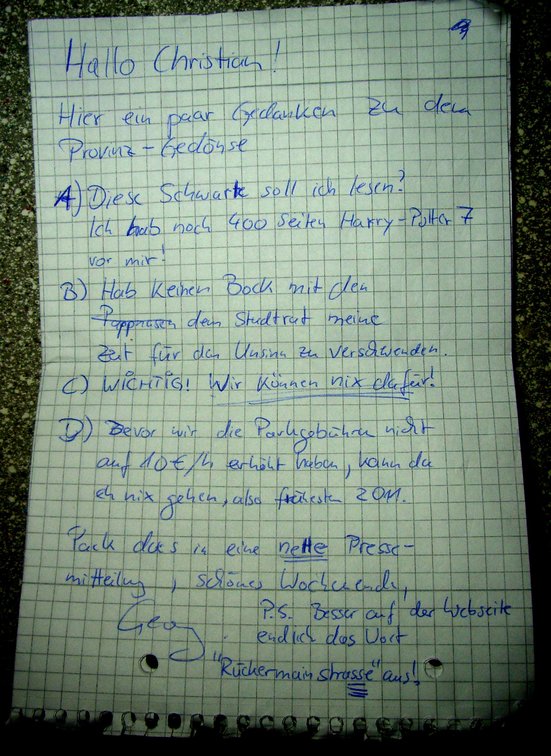 Hallo Christian!
Hier ein paar Gedanken zu dem
Provinz-Gedönse
A) Diese Schwarte soll ich lesen?
Ich hab noch 400 Seiten Harry-Potter 7
vor mir!
B) Hab keinen Bock mit den
Pappnasen dem Stadtrat meine
Zeit für den Unsinn zu verschwenden.
C) WICHTIG! Wir können nix dafür!
D) Bevor wir die Parkgebühren nicht
auf 10€/h erhöht haben, kann da
eh nix gehen, also frühesten 2011.
Pack das in eine nette Presse-
mitteilung, schönes Wochenende,
Georg
P.S. Besser auf der Webseite
endlich das Wort
"Rückermainstrasse" aus!